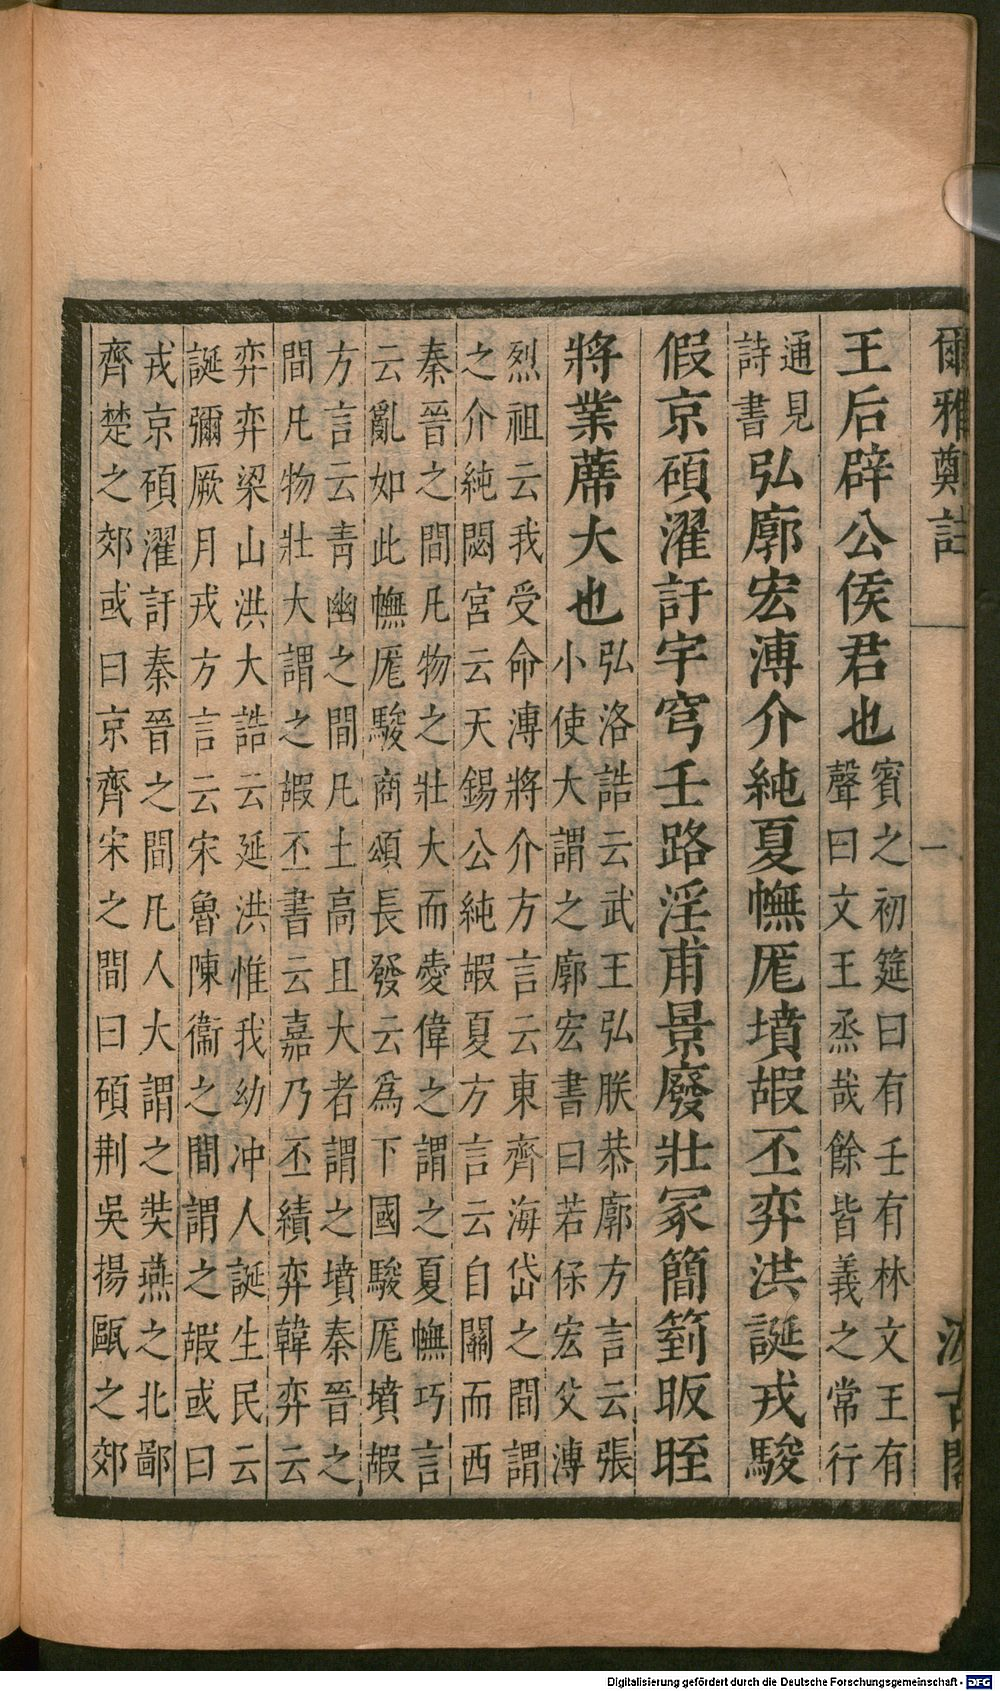 爾雅鄭註 一 汲古閣
王后辟公侯君也
賓之初筵曰有壬有林文王有
聲曰文王烝哉餘皆義之常行
通見
詩書
弘廓宏溥介純夏幠厖墳嘏丕弈洪誕戎駿
假京碩濯訏宇穹壬路淫甫景廢壯冢簡箌昄晊
將業蓆大也
弘洛誥云武王弘朕恭廓方言云張
小使大謂之廓宏書曰若保宏父溥
烈祖云我受命溥將介方言云東齊海岱之間謂
之介純閟宮云天錫公純嘏夏方言云自關而西
秦晉之間凡物之壯大而愛偉之謂之夏幠巧言
云亂如此幠厖駿商頌長發云爲下國駿厖墳嘏
方言云青幽之間凡土高且大者謂之墳秦晉之
間凡物壯大謂之嘏丕書云嘉乃丕績弈韓弈云
弈弈梁山洪大誥云延洪惟我幼冲人誕生民云
誕彌厥月戎方言云宋魯陳衞之間謂之嘏或曰
戎京碩濯訏秦晉之間凡人大謂之奘燕之北鄙
齊楚之郊或曰京齊宋之間曰碩荆吳揚甌之郊
Digitalisierung gefördert durch die Deutsche Forschungsgemeinschaft - DFG